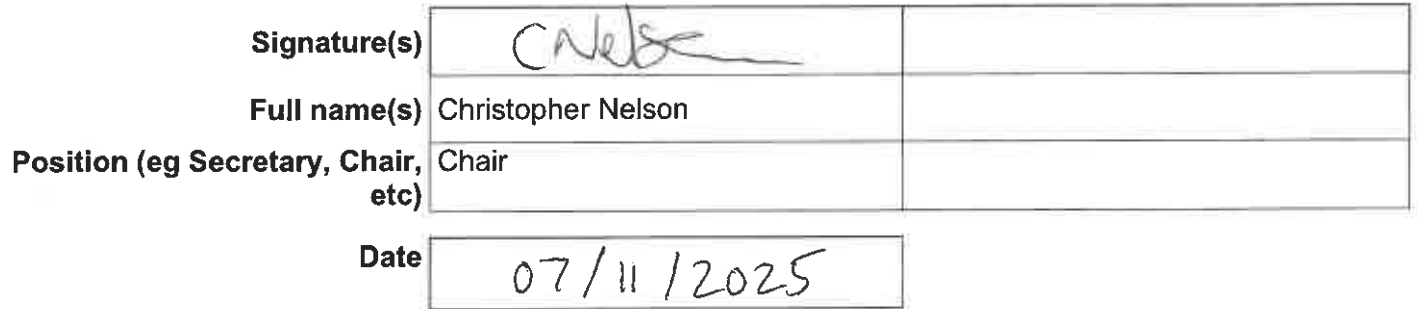 Signature(s) CNelson
Full name(s) Christopher Nelson
Position (eg Secretary, Chair, Chair
etc)
Date 07/11/2025